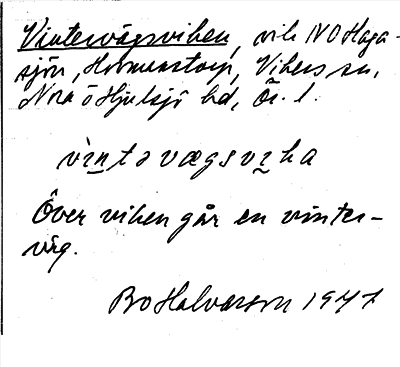 Vintervägsviken, vik NO Haga-
sjön, Hammarstorp, Vikers sn,
Nora o Hjulsjö hd, Ör. l.
vintəvægsvika
Över viken går en vinter-
väg.
Bo Halvarson 1947